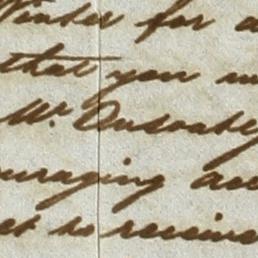 Winter for a
that you
Mr.
uraging acc
et to receive